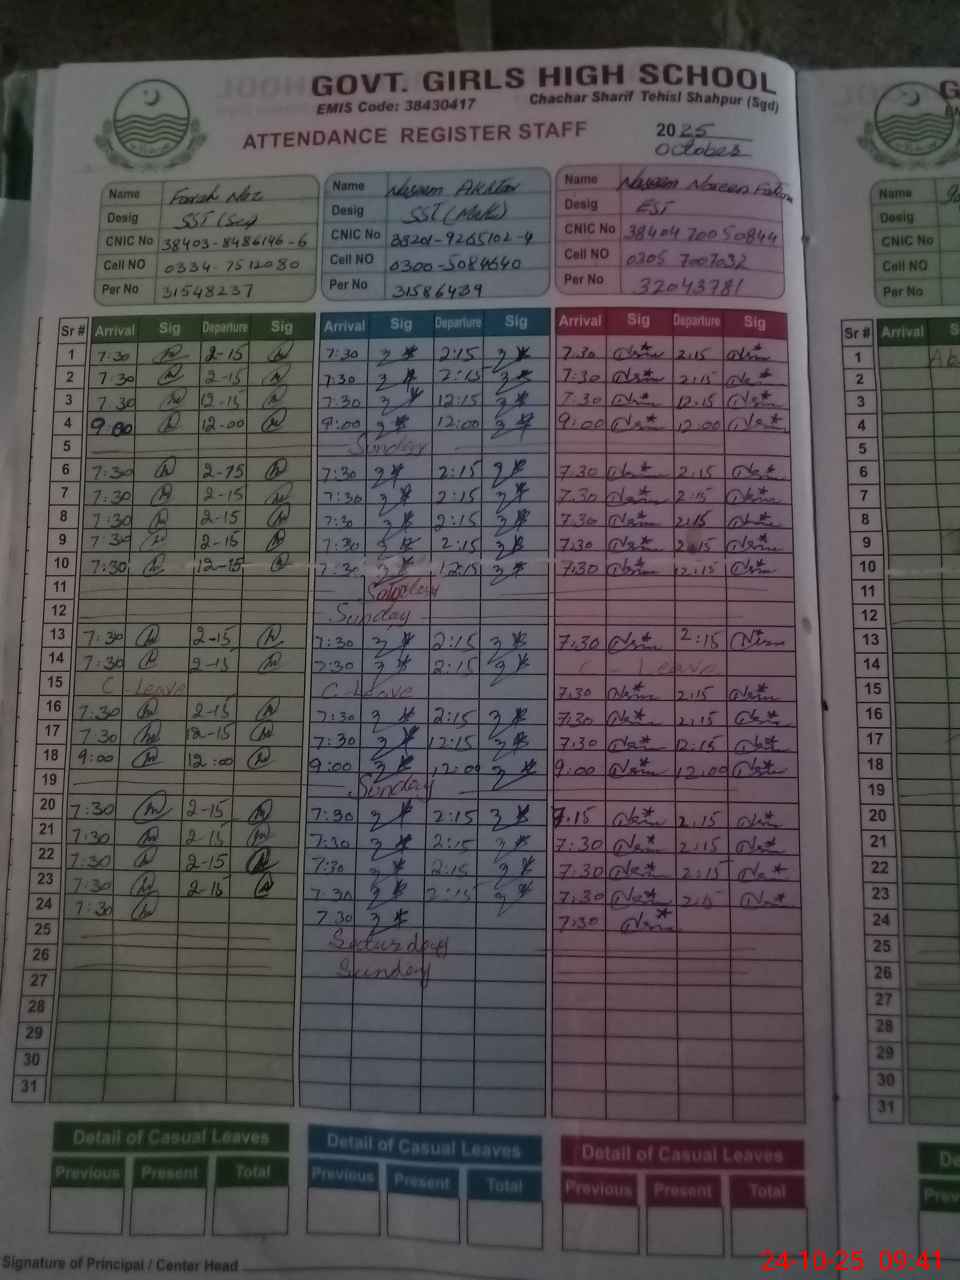 GOVT. GIRLS HIGH SCHOOL
EMIS Code: 38430417 Chachar Sharif Tehisl Shahpur (Sgd)
ATTENDANCE REGISTER STAFF 2025
October
Name Farah Naz Name Naseem Akhtar Name Naseem Noreen
Desig SST (Sci) Desig SST (Math) Desig EST
CNIC No 38403-8486146-6 CNIC No 38201-9265102-4 CNIC No 38404 7005084 4
Cell NO 0334-7512080 Cell NO 0300-5084640 Cell NO 0305 7007032
Per No 31548237 Per No 31586439 Per No 32043781
Sr # Arrival Sig Departure Sig Arrival Sig Departure Sig Arrival Sig Departure Sig
1 7:30 2-15 7:30 2:15 7.30 2.15
2 7:30 2-15 7:30 2:15 7:30 2:15
3 7.30 12-15 7:30 12:15 7.30 12.15
4 9:00 12-00 9:00 12:00 9:00 12:00
5 Sunday
6 7:30 2-15 7:30 2:15 7.30 2.15
7 7:30 2-15 7:30 2:15 7.30 2:15
8 7:30 2-15 7:30 2:15 7.30 2:15
9 7:30 2-15 7:30 2:15 7.30 2.15
10 7:30 12-15 7:30 12:15 7:30 12.15
11
12 Sunday
13 7:30 2-15 7:30 2:15 7.30 2:15
14 7:30 2-15 7:30 2:15 C - Leave
15 C-Leave C-Leave 7.30 2.15
16 7:30 2-15 7:30 2:15 7.30 2.15
17 7:30 12-15 7:30 12:15 7:30 12:15
18 9:00 12:00 9:00 12:00 9:00 12.00
19 Sunday
20 7:30 2-15 7:30 2:15 7.15 2.15
21 7:30 2-15 7:30 2:15 7:30 2:15
22 7:30 2-15 7:30 2:15 7:30 2:15
23 7:30 2-15 7:30 2:15 7:30 2:15
24 7:30 7:30 7:30
25 Saturday
26 Sunday
27
28
29
30
31
Detail of Casual Leaves Detail of Casual Leaves Detail of Casual Leaves
Previous Present Total Previous Present Total Previous Present Total
Signature of Principal / Center Head
G
Name
Desig
CNIC No
Cell NO
Per No
Sr # Arrival S
1
2
3
4
5
6
7
8
9
10
11
12
13
14
15
16
17
18
19
20
21
22
23
24
25
26
27
28
29
30
31
24-10-25 09:41